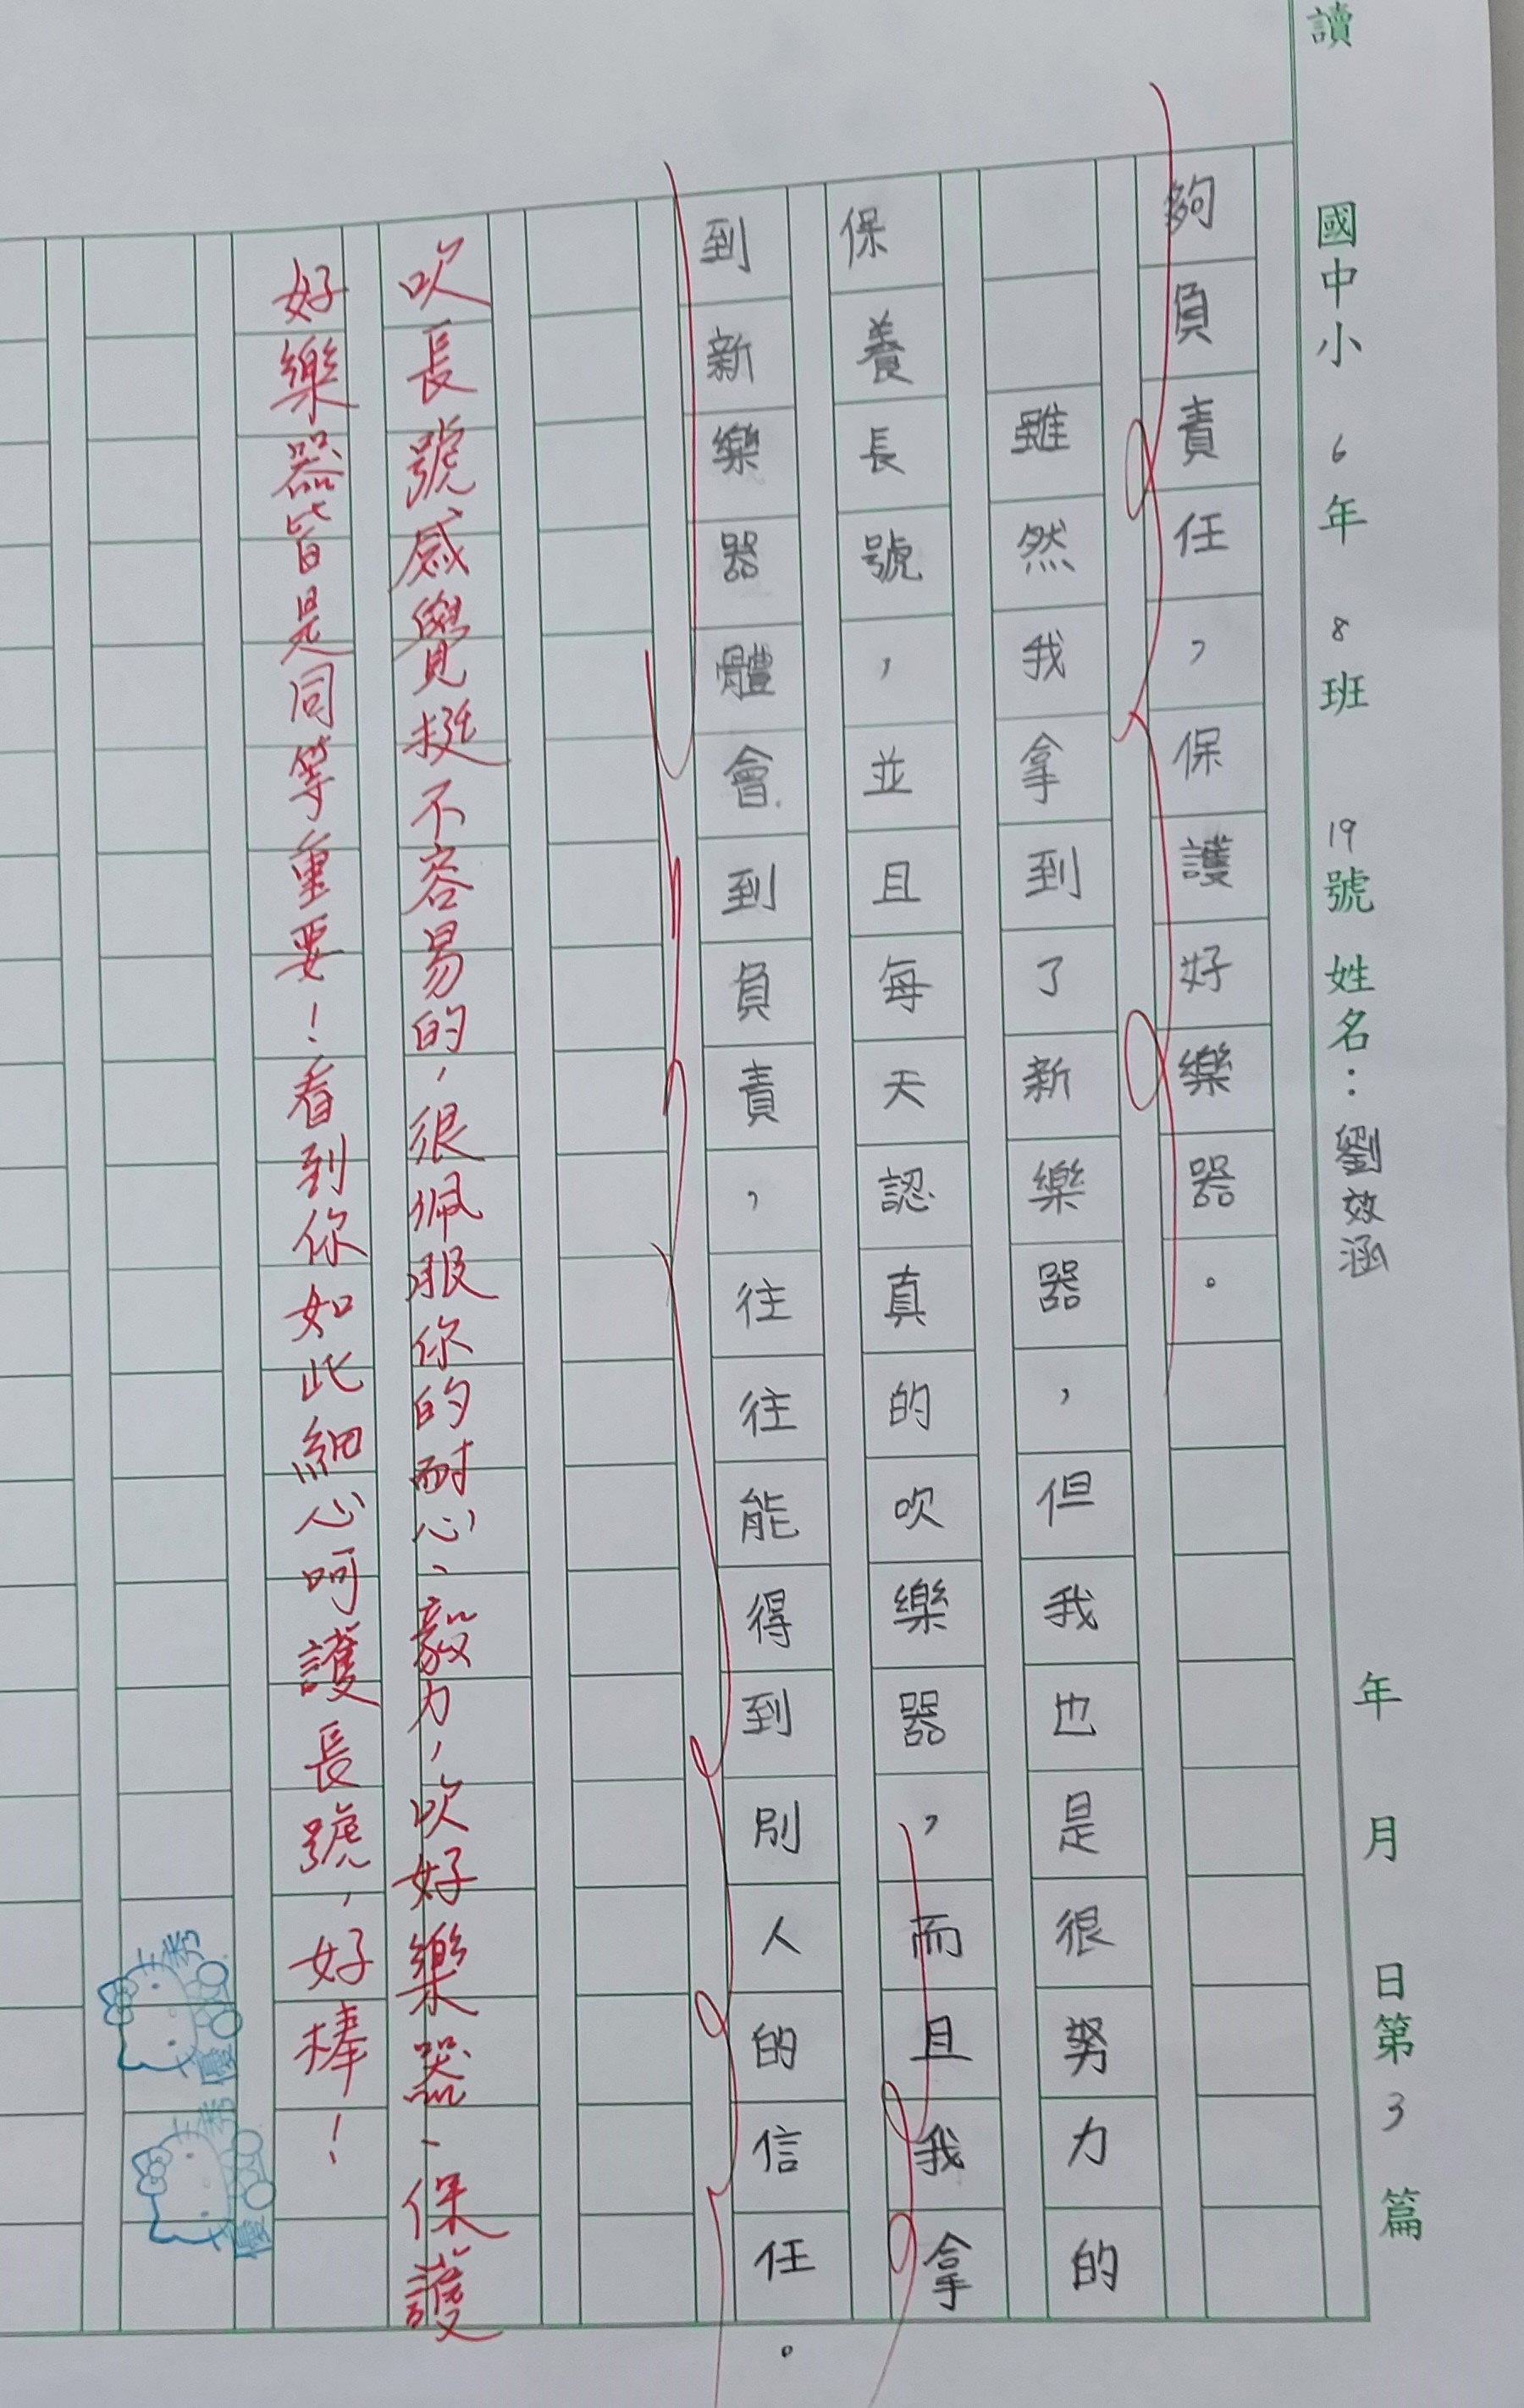 讀 國中小 6年 8班 19號 姓名：劉效涵 年 月 日第3篇
夠負責任，保護好樂器。
雖然我拿到了新樂器，但我也是很努力的
保養長號，並且每天認真的吹樂器，而且我拿
到新樂器體會到負責，往往能得到別人的信任。
吹長號感覺挺不容易的，很佩服你的耐心、毅力，吹好樂器、保護
好樂器皆是同等重要！看到你如此細心呵護長號，好棒！
優秀
優秀